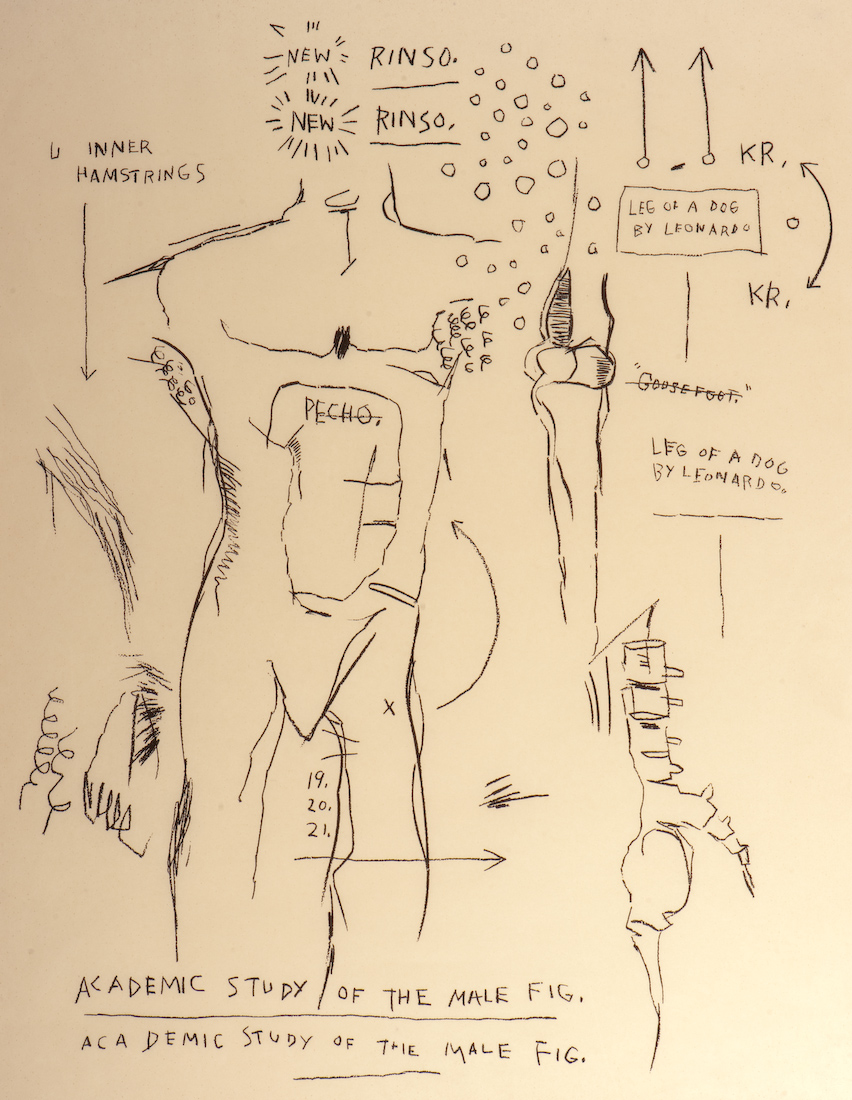 NEW RINSO.
NEW RINSO.
KR.
U INNER
HAMSTRINGS
LEG OF A DOG
BY LEONARDO
KR.
"GOOSEFOOT."
PECHO.
LEG OF A DOG
BY LEONARDO.
X
19.
20.
21.
ACADEMIC STUDY OF THE MALE FIG.
ACADEMIC STUDY OF THE MALE FIG.